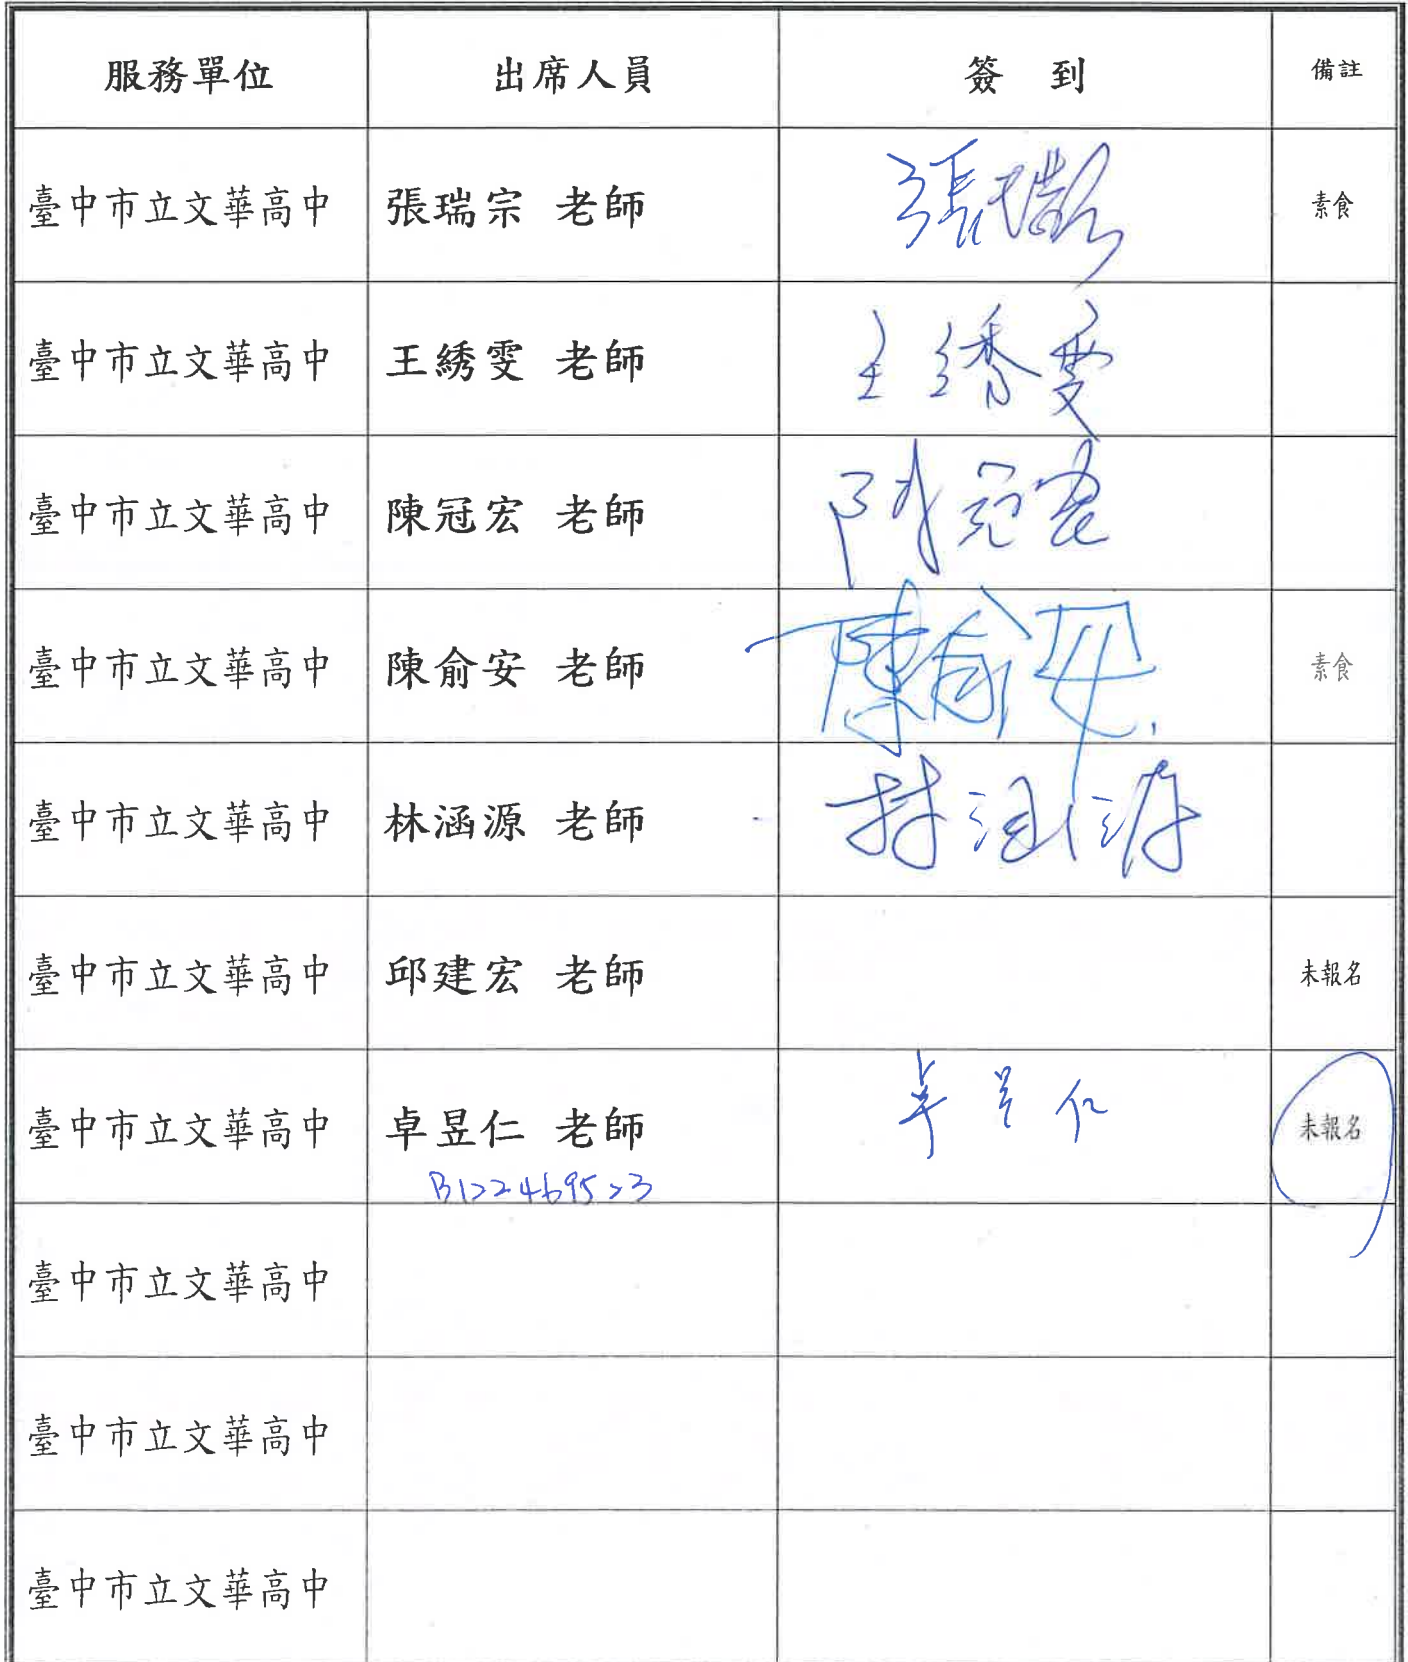 服務單位 出席人員 簽 到 備註
臺中市立文華高中 張瑞宗 老師 張瑞宗 素食
臺中市立文華高中 王綉雯 老師 王綉雯
臺中市立文華高中 陳冠宏 老師 陳冠宏
臺中市立文華高中 陳俞安 老師 陳俞安 素食
臺中市立文華高中 林涵源 老師 林涵源
臺中市立文華高中 邱建宏 老師 未報名
臺中市立文華高中 卓昱仁 老師 卓昱仁 未報名
B122469523
臺中市立文華高中
臺中市立文華高中
臺中市立文華高中